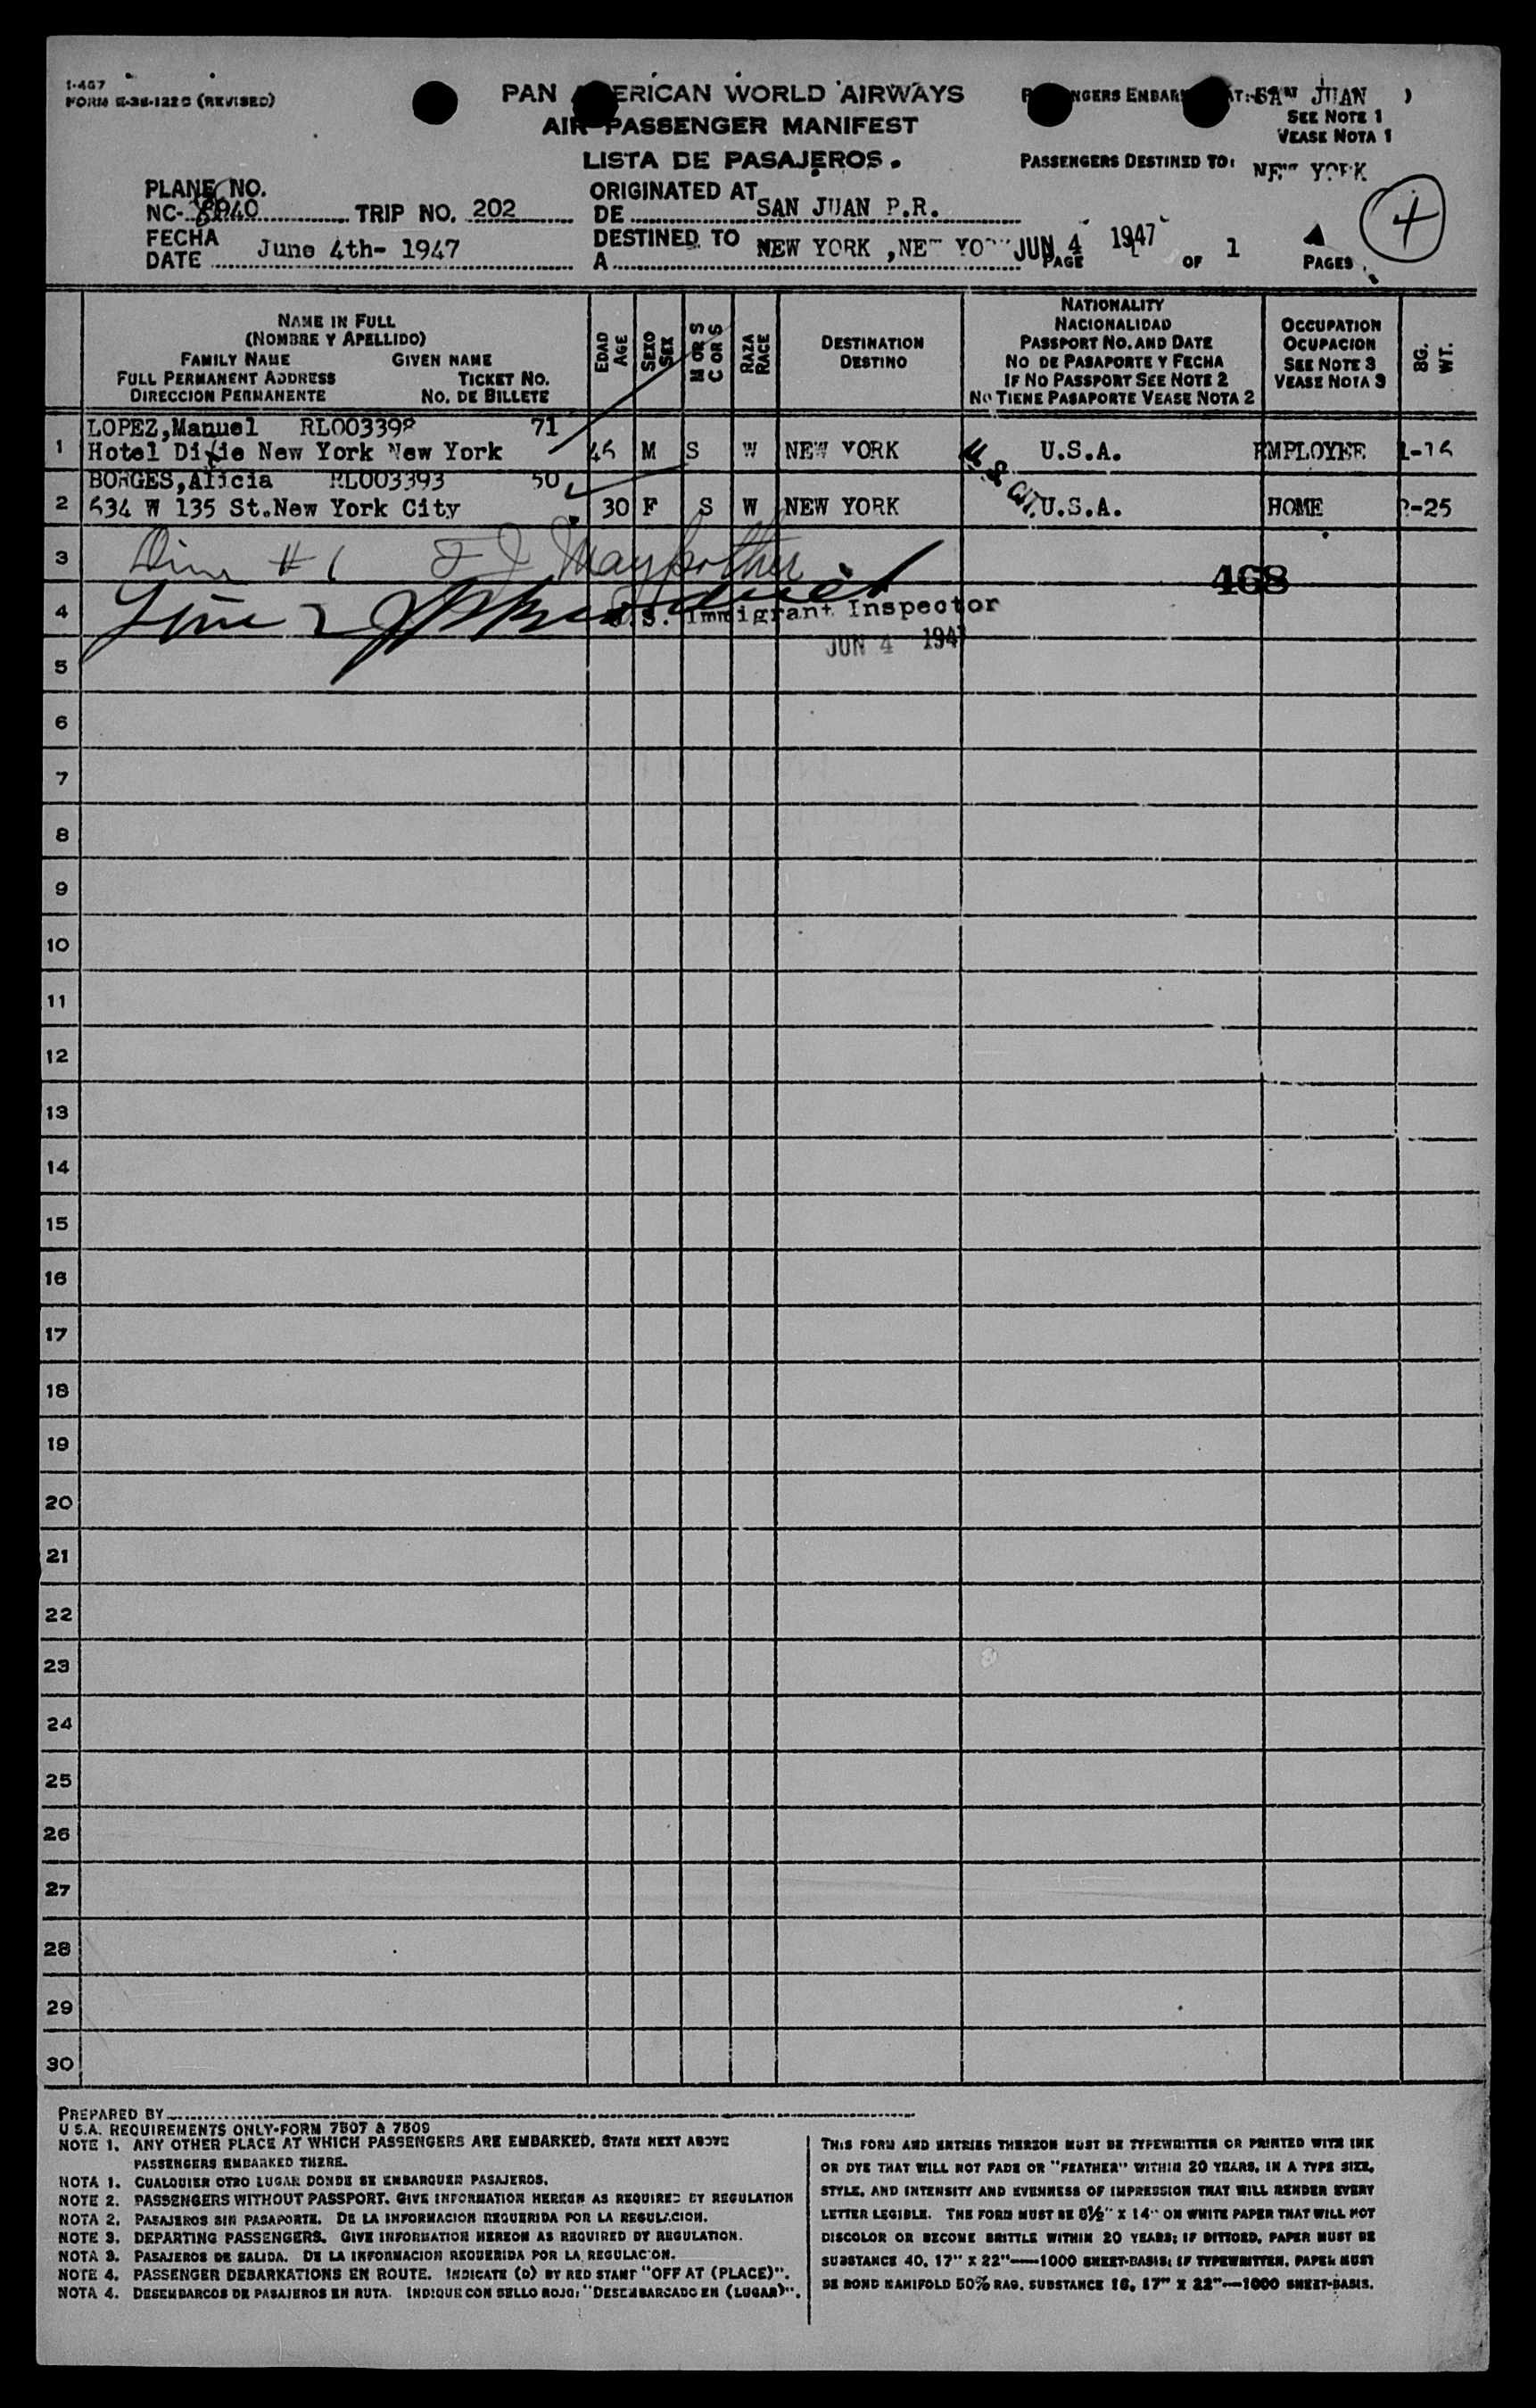 I-467
FORM E-38-122C (REVISED)
PAN AMERICAN WORLD AIRWAYS
AIR PASSENGER MANIFEST
LISTA DE PASAJEROS.
SAN JUAN )
SEE NOTE 1
VEASE NOTA 1
PASSENGERS DESTINED TO: NEW YORK
PLANE NO.
NC- TRIP NO. 202
ORIGINATED AT
DE SAN JUAN P.R.
4
FECHA
DATE June 4th- 1947
DESTINED TO
A NEW YORK ,NEW YO
JUN 4 1947
PAGE OF 1 PAGES
NAME IN FULL
(NOMBRE Y APELLIDO)
FAMILY NAME GIVEN NAME
FULL PERMANENT ADDRESS TICKET NO.
DIRECCION PERMANENTE NO. DE BILLETE
EDAD
AGE
SEXO
SEX
M OR S
C OR S
RAZA
RACE
DESTINATION
DESTINO
NATIONALITY
NACIONALIDAD
PASSPORT NO. AND DATE
NO DE PASAPORTE Y FECHA
IF NO PASSPORT SEE NOTE 2
NO TIENE PASAPORTE VEASE NOTA 2
OCCUPATION
OCUPACION
SEE NOTE 3
VEASE NOTA 3
BG.
WT.
LOPEZ,Manuel RL003398 71
1 Hotel Dixie New York New York M S W NEW YORK U.S.A. EMPLOYEE
BORGES,Alicia RL003393 50
2 634 W 135 St.New York City 30 F S W NEW YORK U.S.A. HOME 2-25
3 #1
468
4 Line 2 U.S. Immigrant Inspector
JUN 4 1947
5
6
7
8
9
10
11
12
13
14
15
16
17
18
19
20
21
22
23
24
25
26
27
28
29
30
PREPARED BY
U.S.A. REQUIREMENTS ONLY-FORM 7507 & 7509
NOTE 1. ANY OTHER PLACE AT WHICH PASSENGERS ARE EMBARKED, STATE NEXT ABOVE
PASSENGERS EMBARKED THERE.
NOTA 1. CUALQUIER OTRO LUGAR DONDE SE EMBARQUEN PASAJEROS.
NOTE 2. PASSENGERS WITHOUT PASSPORT. GIVE INFORMATION HEREON AS REQUIRED BY REGULATION
NOTA 2. PASAJEROS SIN PASAPORTE. DE LA INFORMACION REQUERIDA POR LA REGULACION.
NOTE 3. DEPARTING PASSENGERS. GIVE INFORMATION HEREON AS REQUIRED BY REGULATION.
NOTA 3. PASAJEROS DE SALIDA. DE LA INFORMACION REQUERIDA POR LA REGULACION.
NOTE 4. PASSENGER DEBARKATIONS EN ROUTE. INDICATE (D) BY RED STAMP "OFF AT (PLACE)".
NOTA 4. DESEMBARCOS DE PASAJEROS EN RUTA. INDIQUE CON SELLO ROJO: "DESEMBARCADO EN (LUGAR)".
THIS FORM AND ENTRIES THEREON MUST BE TYPEWRITTEN OR PRINTED WITH INK
OR DYE THAT WILL NOT FADE OR "FEATHER" WITHIN 20 YEARS, IN A TYPE SIZE,
STYLE, AND INTENSITY AND EVENNESS OF IMPRESSION THAT WILL RENDER EVERY
LETTER LEGIBLE. THE FORM MUST BE 8½" X 14" ON WHITE PAPER THAT WILL NOT
DISCOLOR OR BECOME BRITTLE WITHIN 20 YEARS; IF DITTOED, PAPER MUST BE
SUBSTANCE 40, 17" X 22"—1000 SHEET-BASIS; IF TYPEWRITTEN, PAPER MUST
BE BOND MANIFOLD 50% RAG, SUBSTANCE 16, 17" X 22"—1000 SHEET-BASIS.